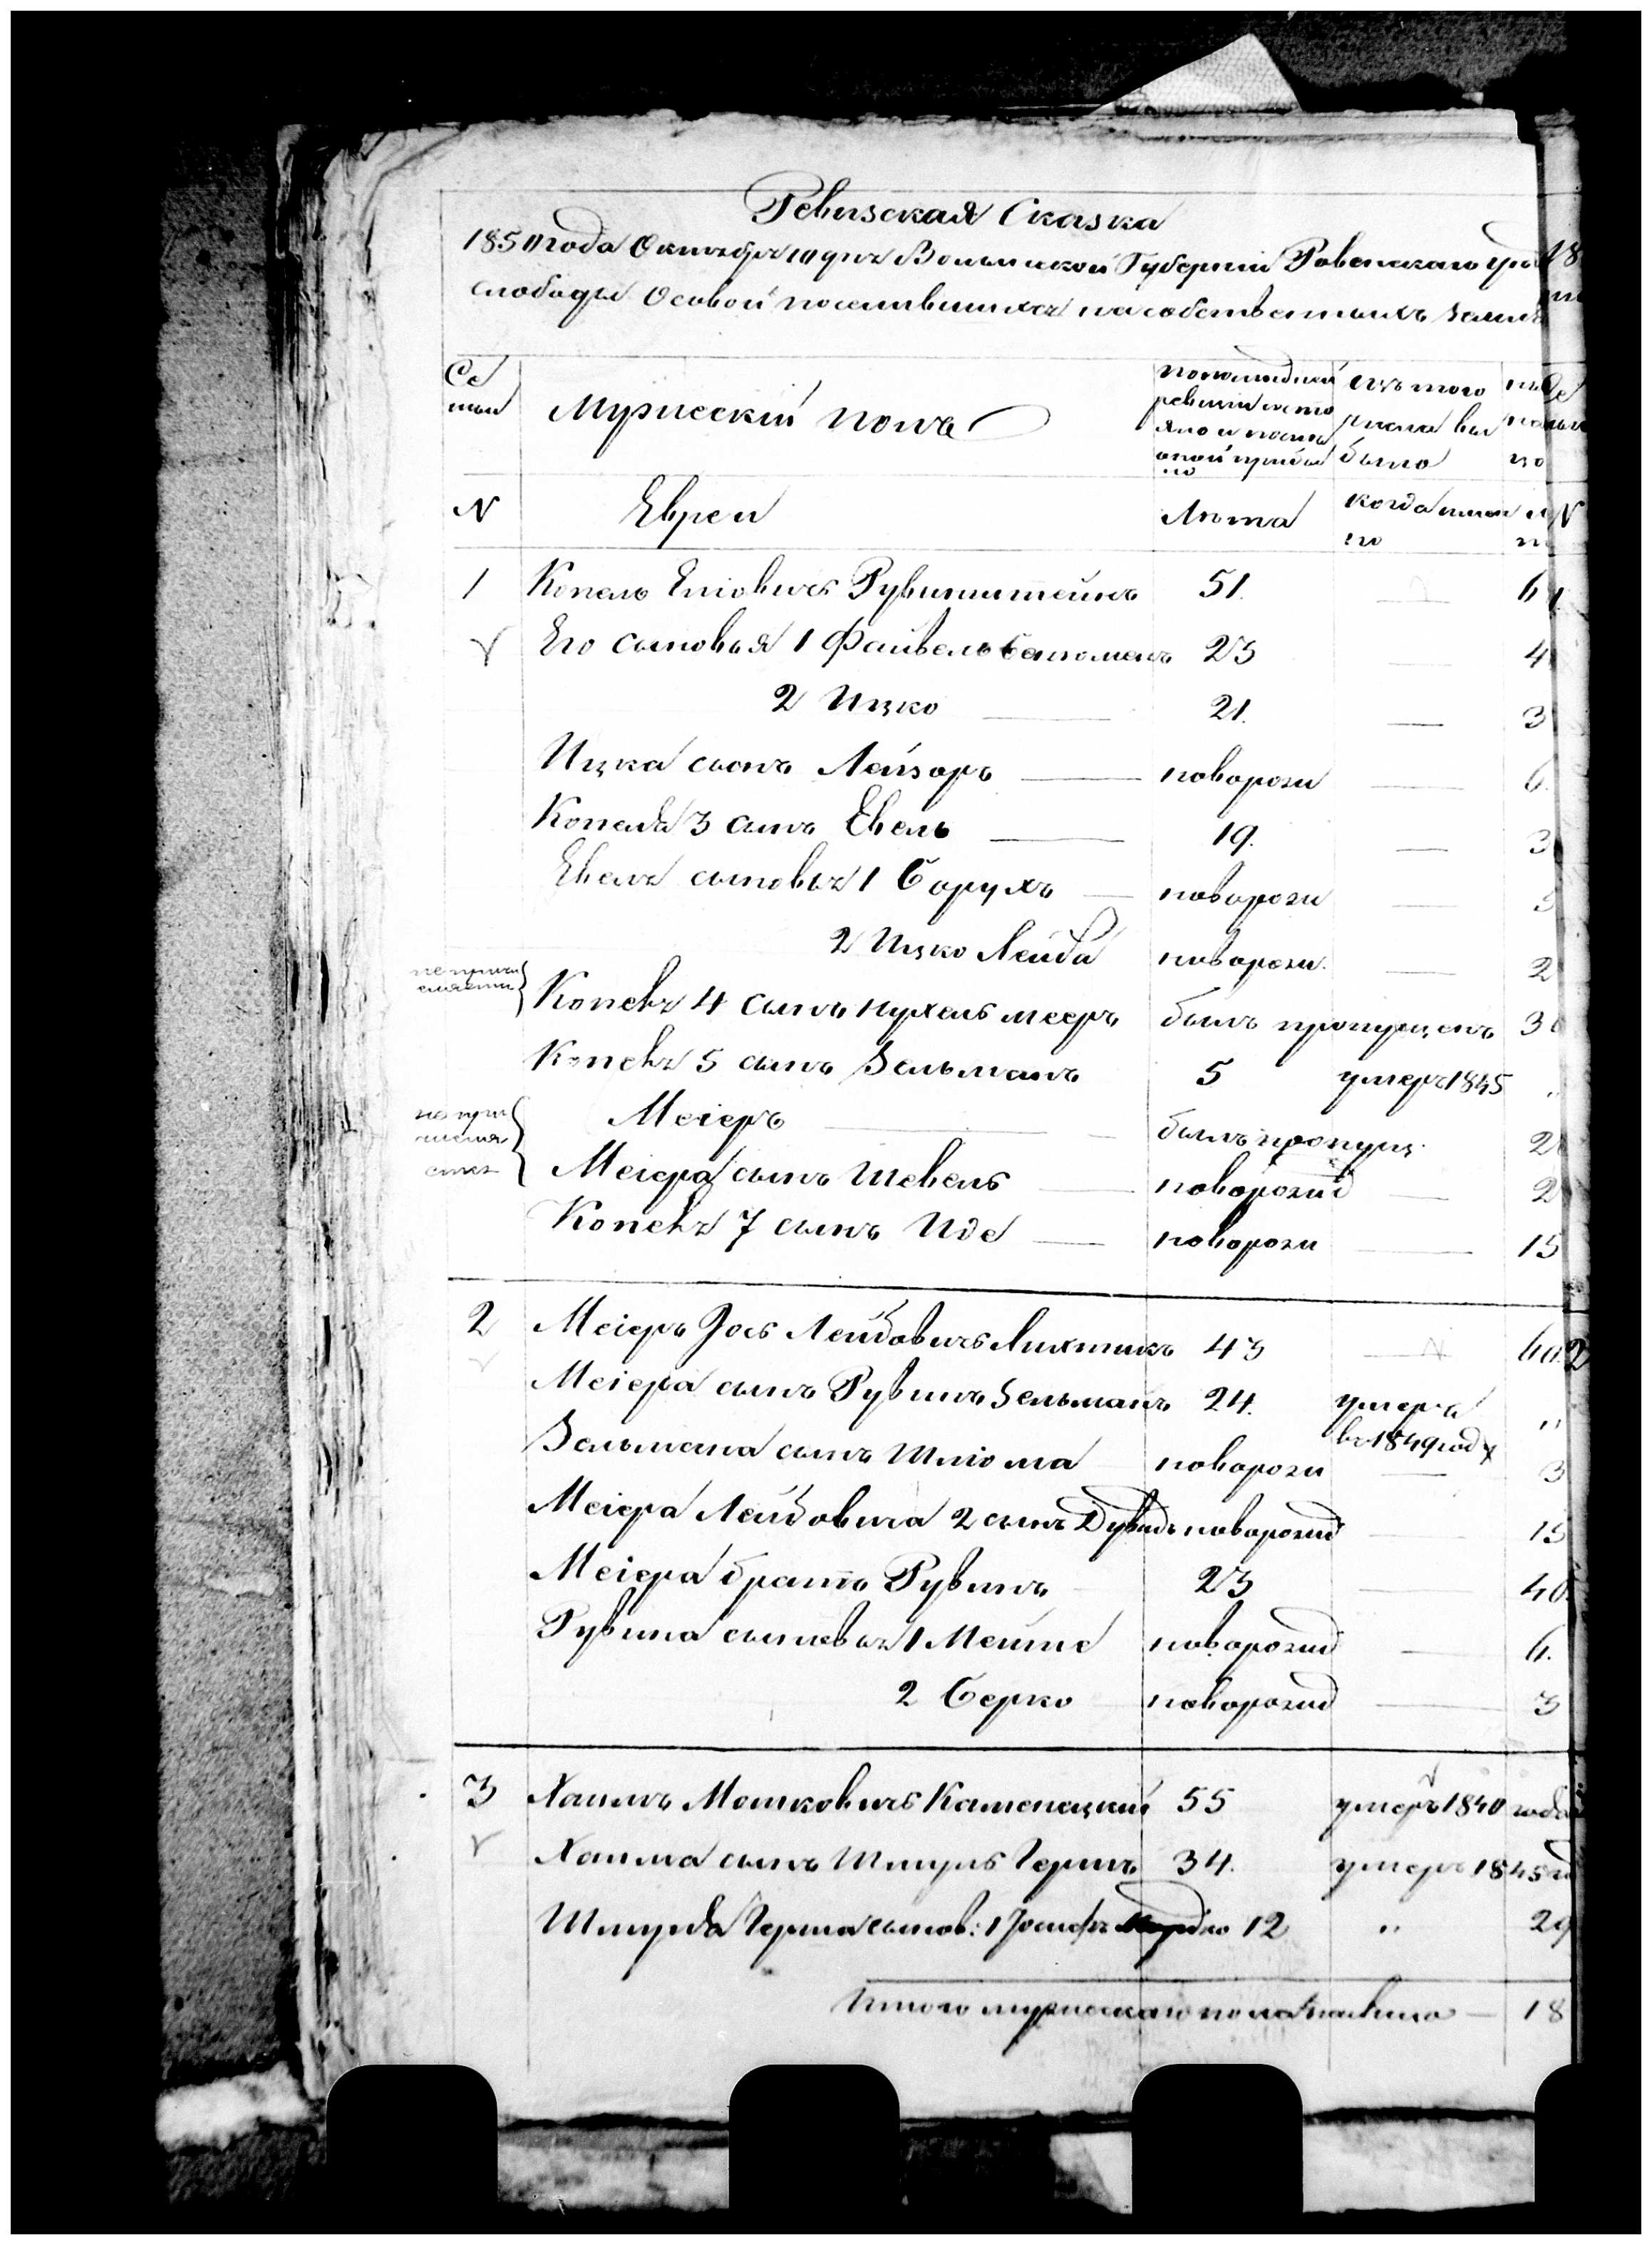 Ревизская Сказка
1850 года Октября 10 дня Волынской Губернии Ровенскаго
слободы Осовой поселившихся на собственныхъ
Се
мьи
Мужескій полъ
по последней
ревизіи состо
яло и после
оной прибы
ло
изъ того
числа вы
было
N
Евреи
Лѣта
когда имен
но
N
1 Копель Еліовичъ Рувинштейнъ 51. — 61
Его сыновья 1 Файвель Соломонъ 23 — 4
2 Ицко — 21. — 3
Ицка сынъ Лейзоръ — новорож — 6
Копеля 3 сынъ Евель — 19. — 3
Евеля сыновья 1 Борухъ — новорож —
2 Ицко Лейба новорож. — 2
не причи
сляется
Копеля 4 сынъ Нухель Мееръ былъ пропущенъ 3
Копеля 5 сынъ Зельманъ 5 умеръ 1845 "
Меіеръ — былъ пропущ. 2
Меіера сынъ Шевель — новорожд — 2
Копеля 7 сынъ Иде — новорож — 15
2 Меіеръ Іось Лейбовичъ Лихтикъ 43
Меіера сынъ Рувинъ Зельманъ 24. умеръ "
въ 1849 году
Зельмана сынъ Шліома новорож — 3
Меіера Лейбовича 2 сынъ Дувидъ новорожд — 15
Меіера братъ Рувинъ 23 — 40
Рувина сыновья 1 новорожд — 6.
2 Берко новорожд — 3
3 Хаимъ Мошковичъ Каменецкій 55 умеръ 1840 года
Хаима сынъ Шмуль Гершъ 34. умеръ 1845
Шмуля Герша сынов: 1 Іосифъ 12 " 29
Итого мужескаго пола 18